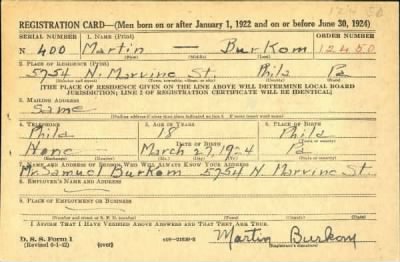 12450
REGISTRATION CARD—(Men born on or after January 1, 1922 and on or before June 30, 1924)
SERIAL NUMBER 1. NAME (Print) ORDER NUMBER
N 400 Martin — Burkom 12450
(First) (Middle) (Last)
2. PLACE OF RESIDENCE (Print)
5754 N. Marvine St. Phila Pa
(Number and street) (Town, township, village, or city) (County) (State)
[THE PLACE OF RESIDENCE GIVEN ON THE LINE ABOVE WILL DETERMINE LOCAL BOARD
JURISDICTION; LINE 2 OF REGISTRATION CERTIFICATE WILL BE IDENTICAL]
3. MAILING ADDRESS
Same
[Mailing address if other than place indicated on line 2. If same insert word same]
4. TELEPHONE 5. AGE IN YEARS 6. PLACE OF BIRTH
Phila 18 Phila
DATE OF BIRTH
None March 27, 1924 Pa
7. NAME AND ADDRESS OF PERSON WHO WILL ALWAYS KNOW YOUR ADDRESS
Mr. Samuel Burkom 5754 N. Marvine St.
8. EMPLOYER'S NAME AND ADDRESS
9. PLACE OF EMPLOYMENT OR BUSINESS
(Number and street or R. F. D. number) (Town) (County) (State)
I AFFIRM THAT I HAVE VERIFIED ABOVE ANSWERS AND THAT THEY ARE TRUE.
D. S. S. Form 1
(Revised 6-1-42) (over) Martin Burkom
(Registrant's signature)